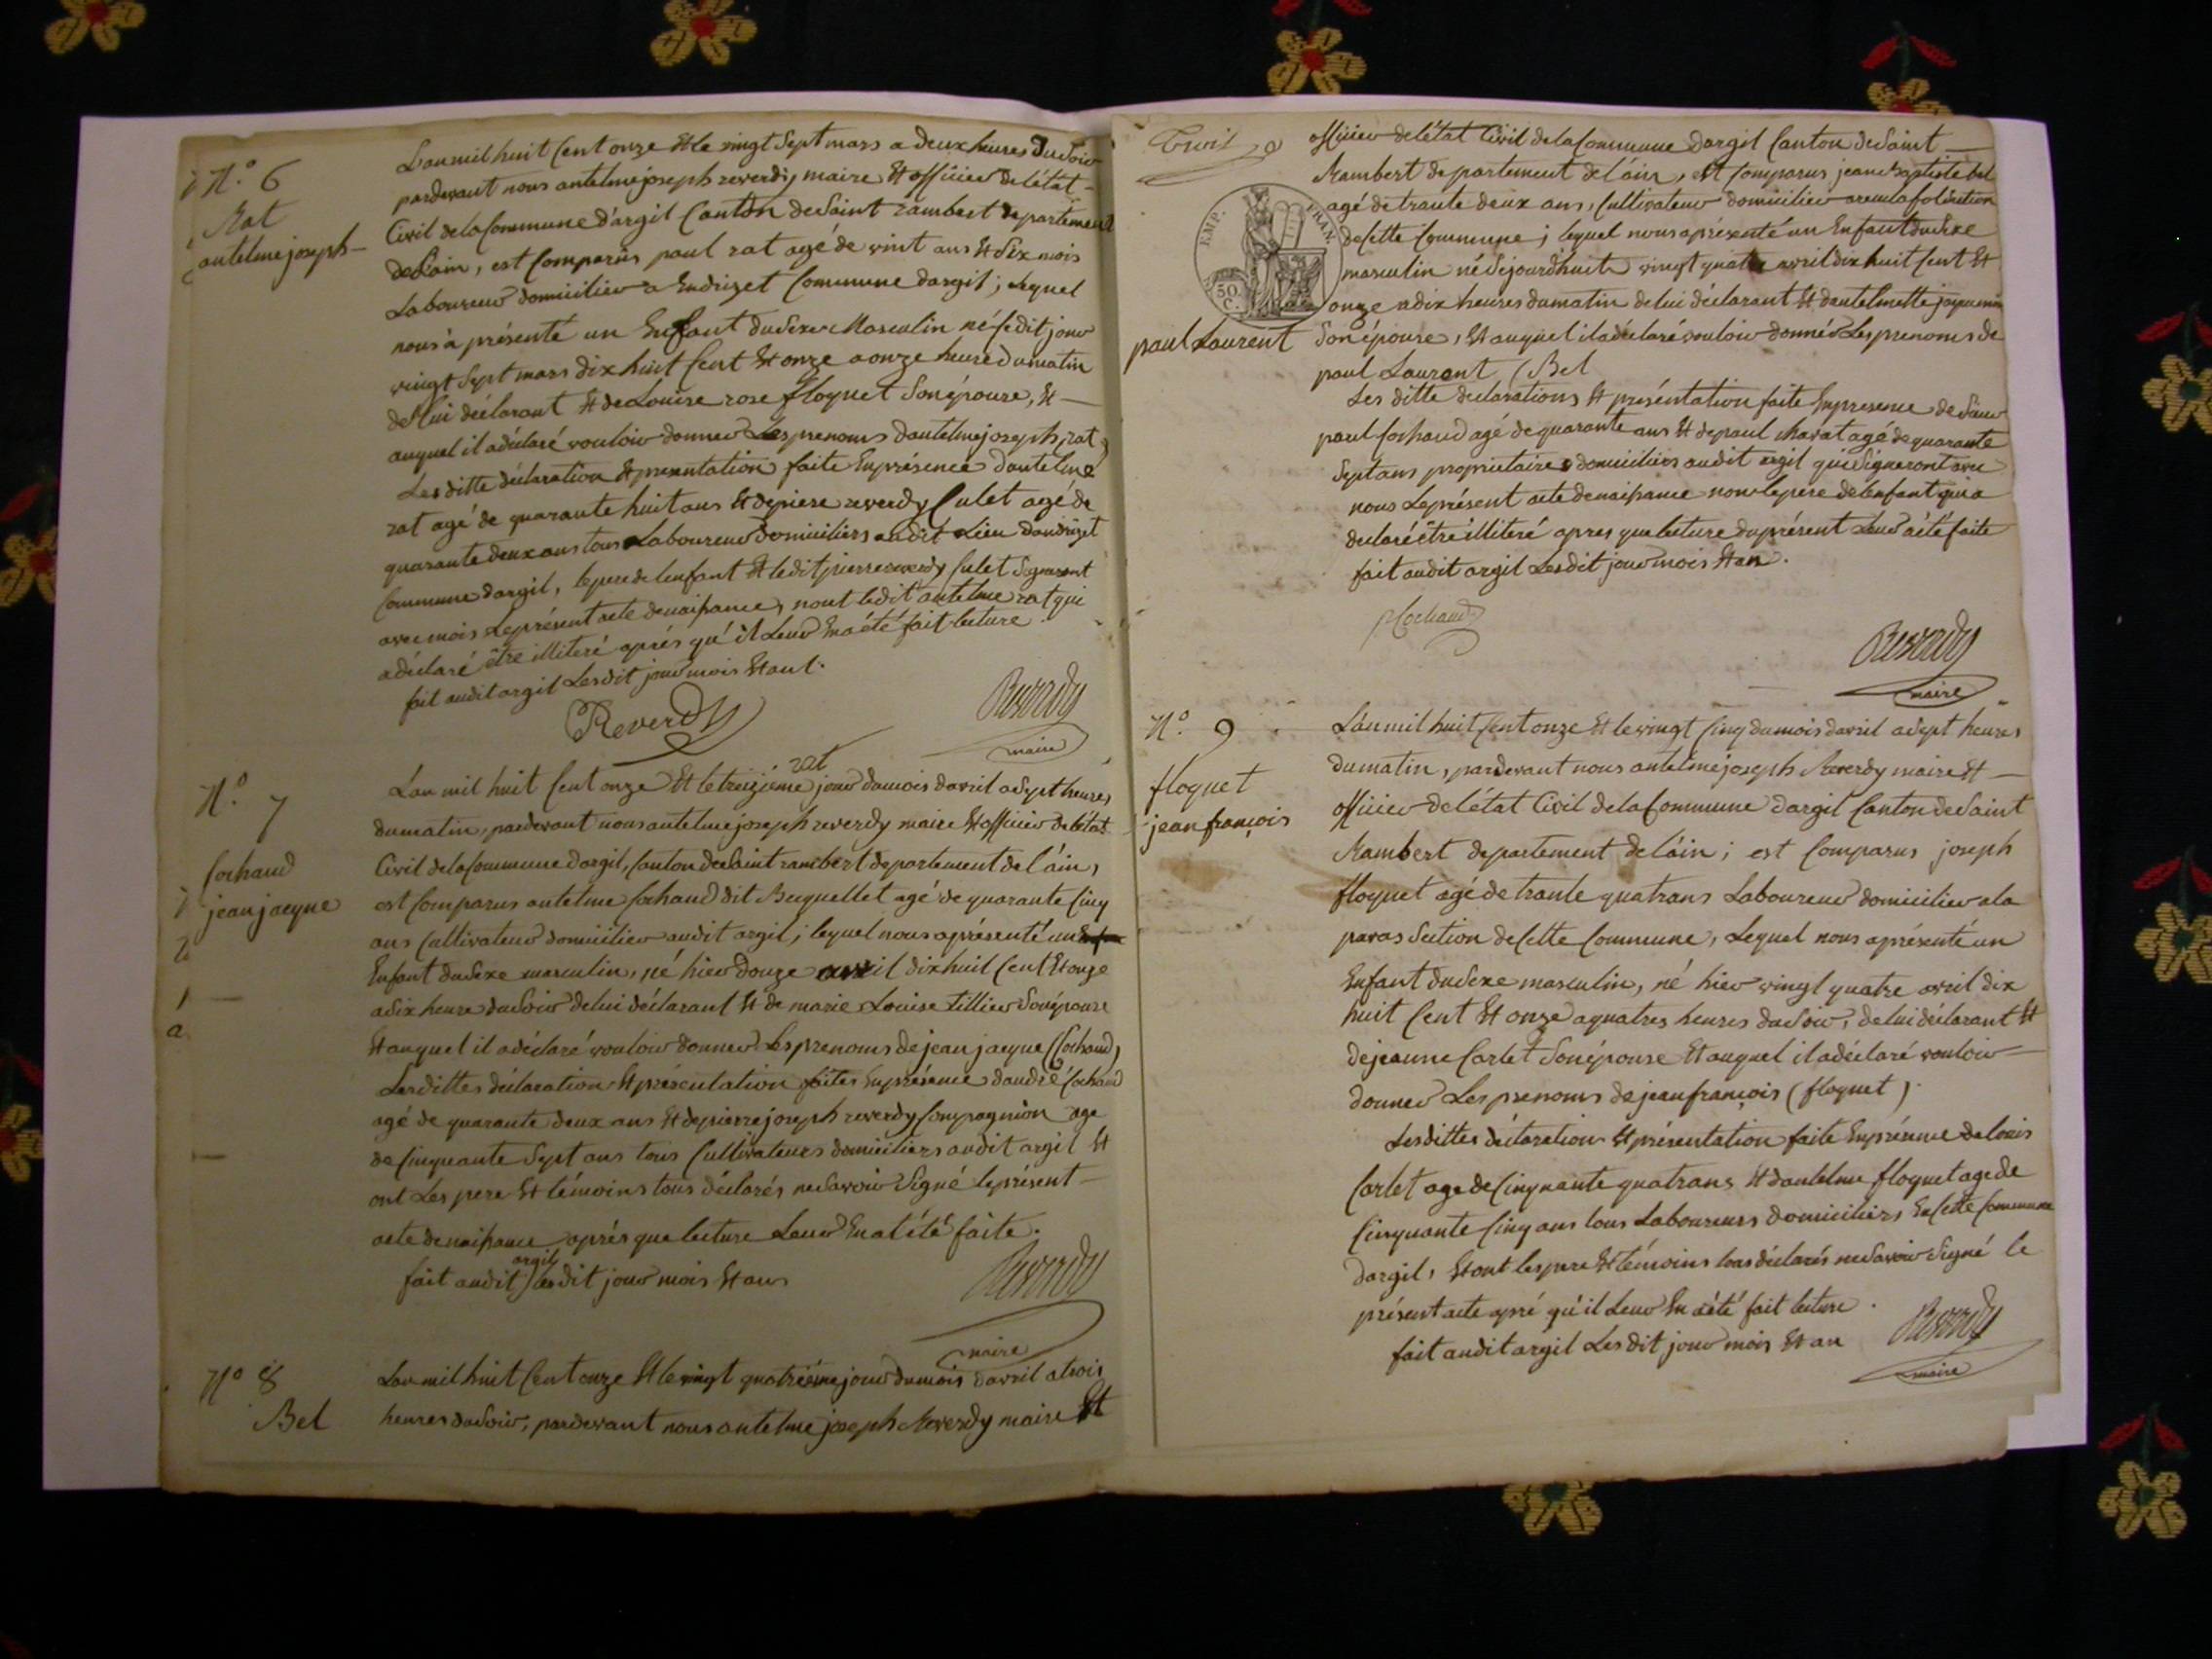 N.° 6
Rat
antelme joseph
L'an mil huit Cent onze Et le vingt Sept mars a deux heures du Soir
pardevant nous antelme joseph reverdy maire Et officier de létat
Civil de la Commune d'argil Canton de Saint rambert departement
de Lain, est Comparus paul rat agé de vint ans Et dix mois
Laboureur domicilier a Endrizet Commune dargil; Lequel
nous à présenté un Enfant du Sexe Masculin né Cedit jour
vingt Sept mars dix huit Cent Et onze a onze heure du matin
de Lui déclarant Et de Louise rose floquet Son épouse, Et
auquel il a déclaré vouloir donner Les prenoms dantelme joseph, rat,
Les ditte déclaration Et presentation faite En présence dantelme
rat agé de quarante huit ans Et de piere reverdy Culet agé de
quarante deux ans tous Laboureur domiciliers audit Lieu dandrizet
Commune dargil, le pere de lenfant Et ledit pierre reverdy Culet Signeront
avec mois Le présent acte de naissance, nont ledit antelme rat qui
a déclaré être illiteré après qu'il Leur En a été fait lecture.
fait audit argil Lesdit jour mois Et ant.
Reverdy
Reverdy
maire
N.° 7
Cochaud
jean jacque
rat
L'an mil huit Cent onze Et le treizième jour du mois davril a Sept heures
du matin, pardevant nous antelme joseph reverdy maire Et officier de létat
Civil de la Commune dargil, Canton de Saint rambert departement de l'áin,
est Comparus antelme Cochaud dit Becquellet agé de quarante Cinq
ans Cultivateur domicilier audit argil; lequel nous a présenté un
Enfant du Sexe masculin, né hier douze avril dix huil Cent Et onze
a dix heure du Soir de lui déclarant Et de marie Louise tillier Son épouse
Et auquel il a déclaré vouloir donner Les prenoms de jean jacque (Cochaud)
Les dittes déclaration Et présentation faites En présence dandré Cochaud
agé de quarante deux ans Et de pierre joseph reverdy Compagnion age
de Cinquante Sept ans tous Cultivateurs domiciliers audit argil Et
ont Les pere Et témoins tous déclarés ne Savoir Signé le présent
acte de naissance après que lecture Leur En at été faite.
argil
fait audit lesdit jour mois Et ans
Reverdy
maire
N° 8
Bel
L'an mil huit Cent onze Et le vingt quatrième jour du mois davril a trois
heures du Soir, pardevant nous antelme joseph Reverdy maire Et
officier de létat Civil de la Commune dargil Canton de Saint
Rambert departement de l'áin, est Comparus jean Baptiste bel
EMP. FRAN.
50 C.
agé de trante deux ans, Cultivateur domicilier
de Cette Commune; lequel nous a présenté un Enfant du Sexe
masculin né Cejourdhuit vingt quatre avril dix huit Cent Et
onze a dix heures du matin de lui déclarant Et dantelmette
paul Laurent
Son épouse, Et auquel il a déclaré vouloir donnér Les prenoms de
paul Laurent (Bel
Les ditte declarations Et présentation faite En presence de Sieur
paul Cochaud agé de quarante ans Et de paul Charat agé de quarante
Sept ans proprietaires domiciliers audit argil qui Signeront avec
nous Le présent acte de naissance non le pere de lenfant qui a
declaré être illiteré apres que lecture du présent Leur a été faite
fait audit argil Lesdit jour mois Et an.
Cochaud
Reverdy
maire
N.° 9
floquet
jean françois
L'an mil huit Cent onze Et le vingt Cinq du mois davril a Sept heures
du matin, pardevant nous antelme joseph Reverdy maire Et
officier de létat Civil de la Commune dargil Canton de Saint
Rambert departement de l'áin; est Comparus joseph
floquet agé de trante quatrans Laboureur domicilier a la
paras Section de Cette Commune, Lequel nous a présenté un
Enfant du Sexe masculin, né hier vingt quatre avril dix
huit Cent Et onze a quatres heures du Soir, de lui déclarant Et
de jeanne Carlet Son épouse Et auquel il a déclaré vouloir
donner Les prenoms de jean françois (floquet).
Les dittes déclarations Et présentation faite En présence de louis
Carlet age de Cinquante quatrans Et dantelme floquet age de
Cinquante Cinq ans tous Laboureurs domiciliers En Cette Commune
dargil, Et ont les pere Et témoins tous déclarés ne Savoir Signé le
présent acte apré qu'il Leur En a été fait lecture.
fait audit argil Lesdit jour mois Et an
Reverdy
maire